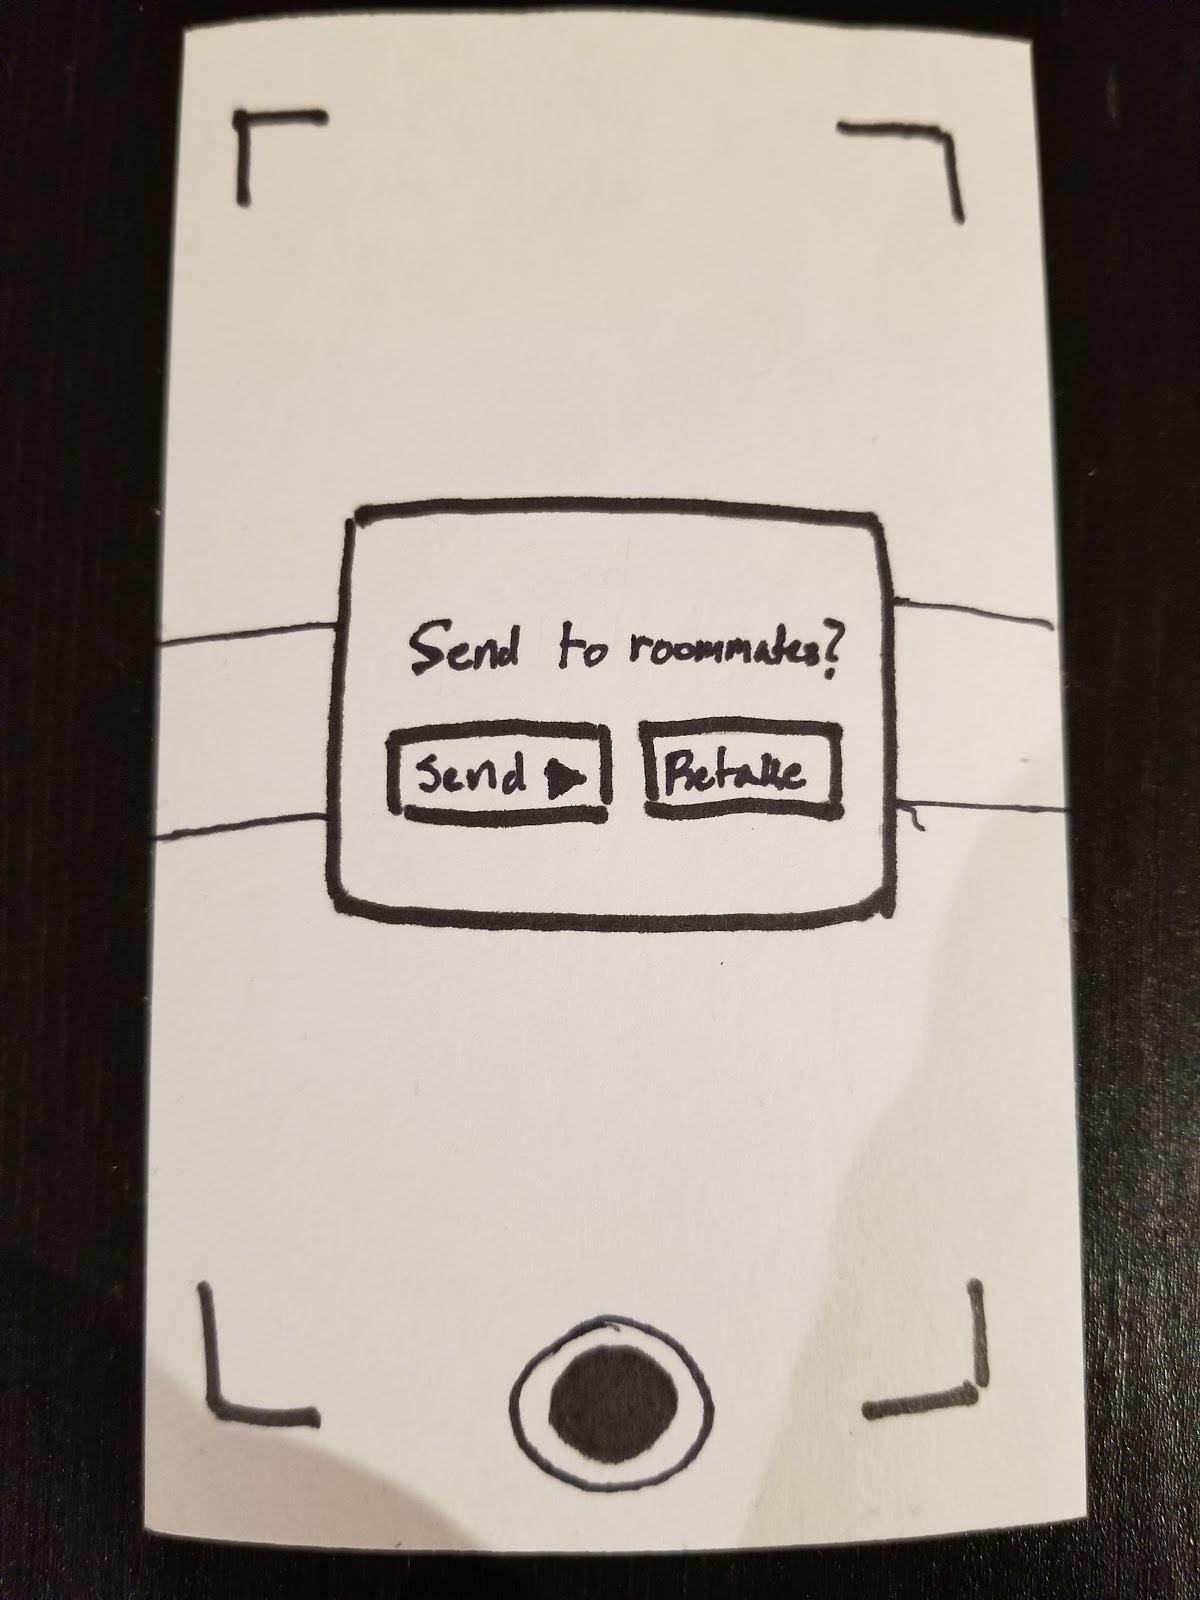 Send to roommates?
Send ▶
Retake